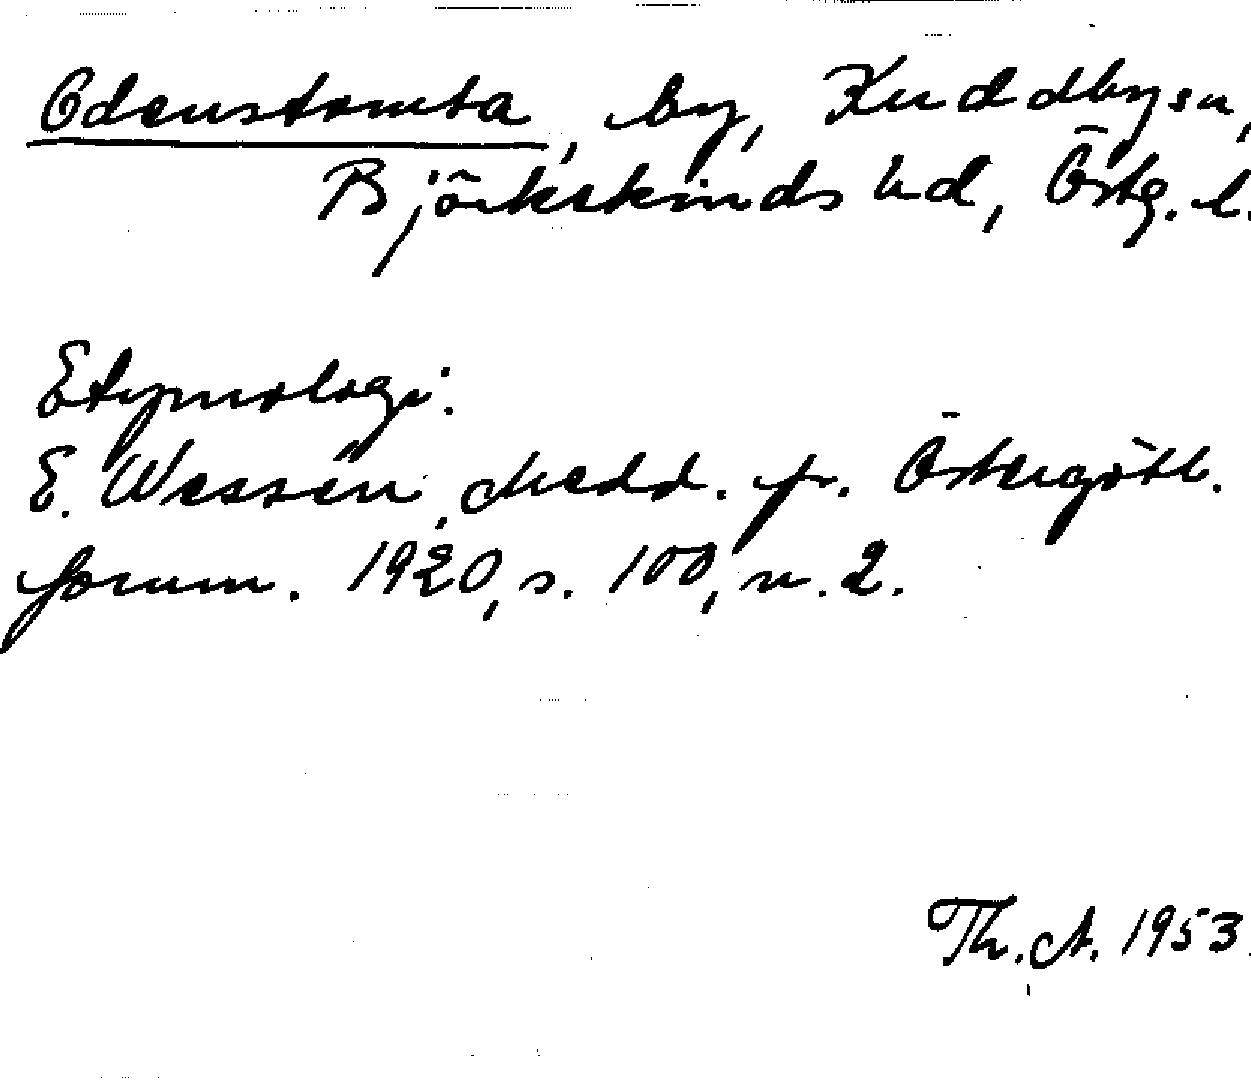 Odenstomta, by, Kuddby sn,
Björkekinds hd, Östg. l.
Etymologi:
E. Wessén, Medd. fr. Östergötl.
fornm. 1920, s. 100, n. 2.
Th. A. 1953.